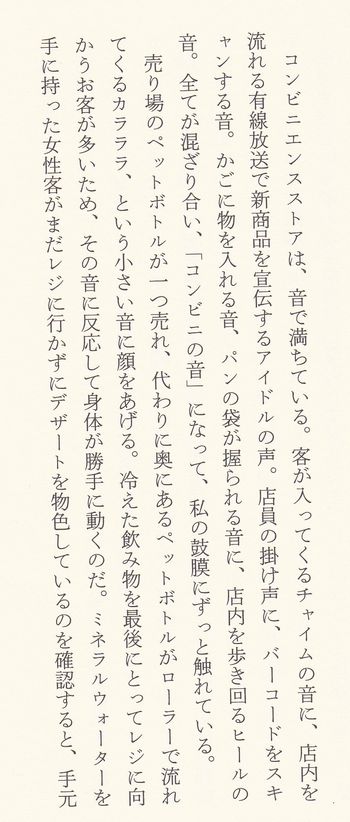 コンビニエンスストアは、音で満ちている。客が入ってくるチャイムの音に、店内を
流れる有線放送で新商品を宣伝するアイドルの声。店員の掛け声に、バーコードをスキ
ャンする音。かごに物を入れる音、パンの袋が握られる音に、店内を歩き回るヒールの
音。全てが混ざり合い、「コンビニの音」になって、私の鼓膜にずっと触れている。
売り場のペットボトルが一つ売れ、代わりに奥にあるペットボトルがローラーで流れ
てくるカラララ、という小さい音に顔をあげる。冷えた飲み物を最後にとってレジに向
かうお客が多いため、その音に反応して身体が勝手に動くのだ。ミネラルウォーターを
手に持った女性客がまだレジに行かずにデザートを物色しているのを確認すると、手元